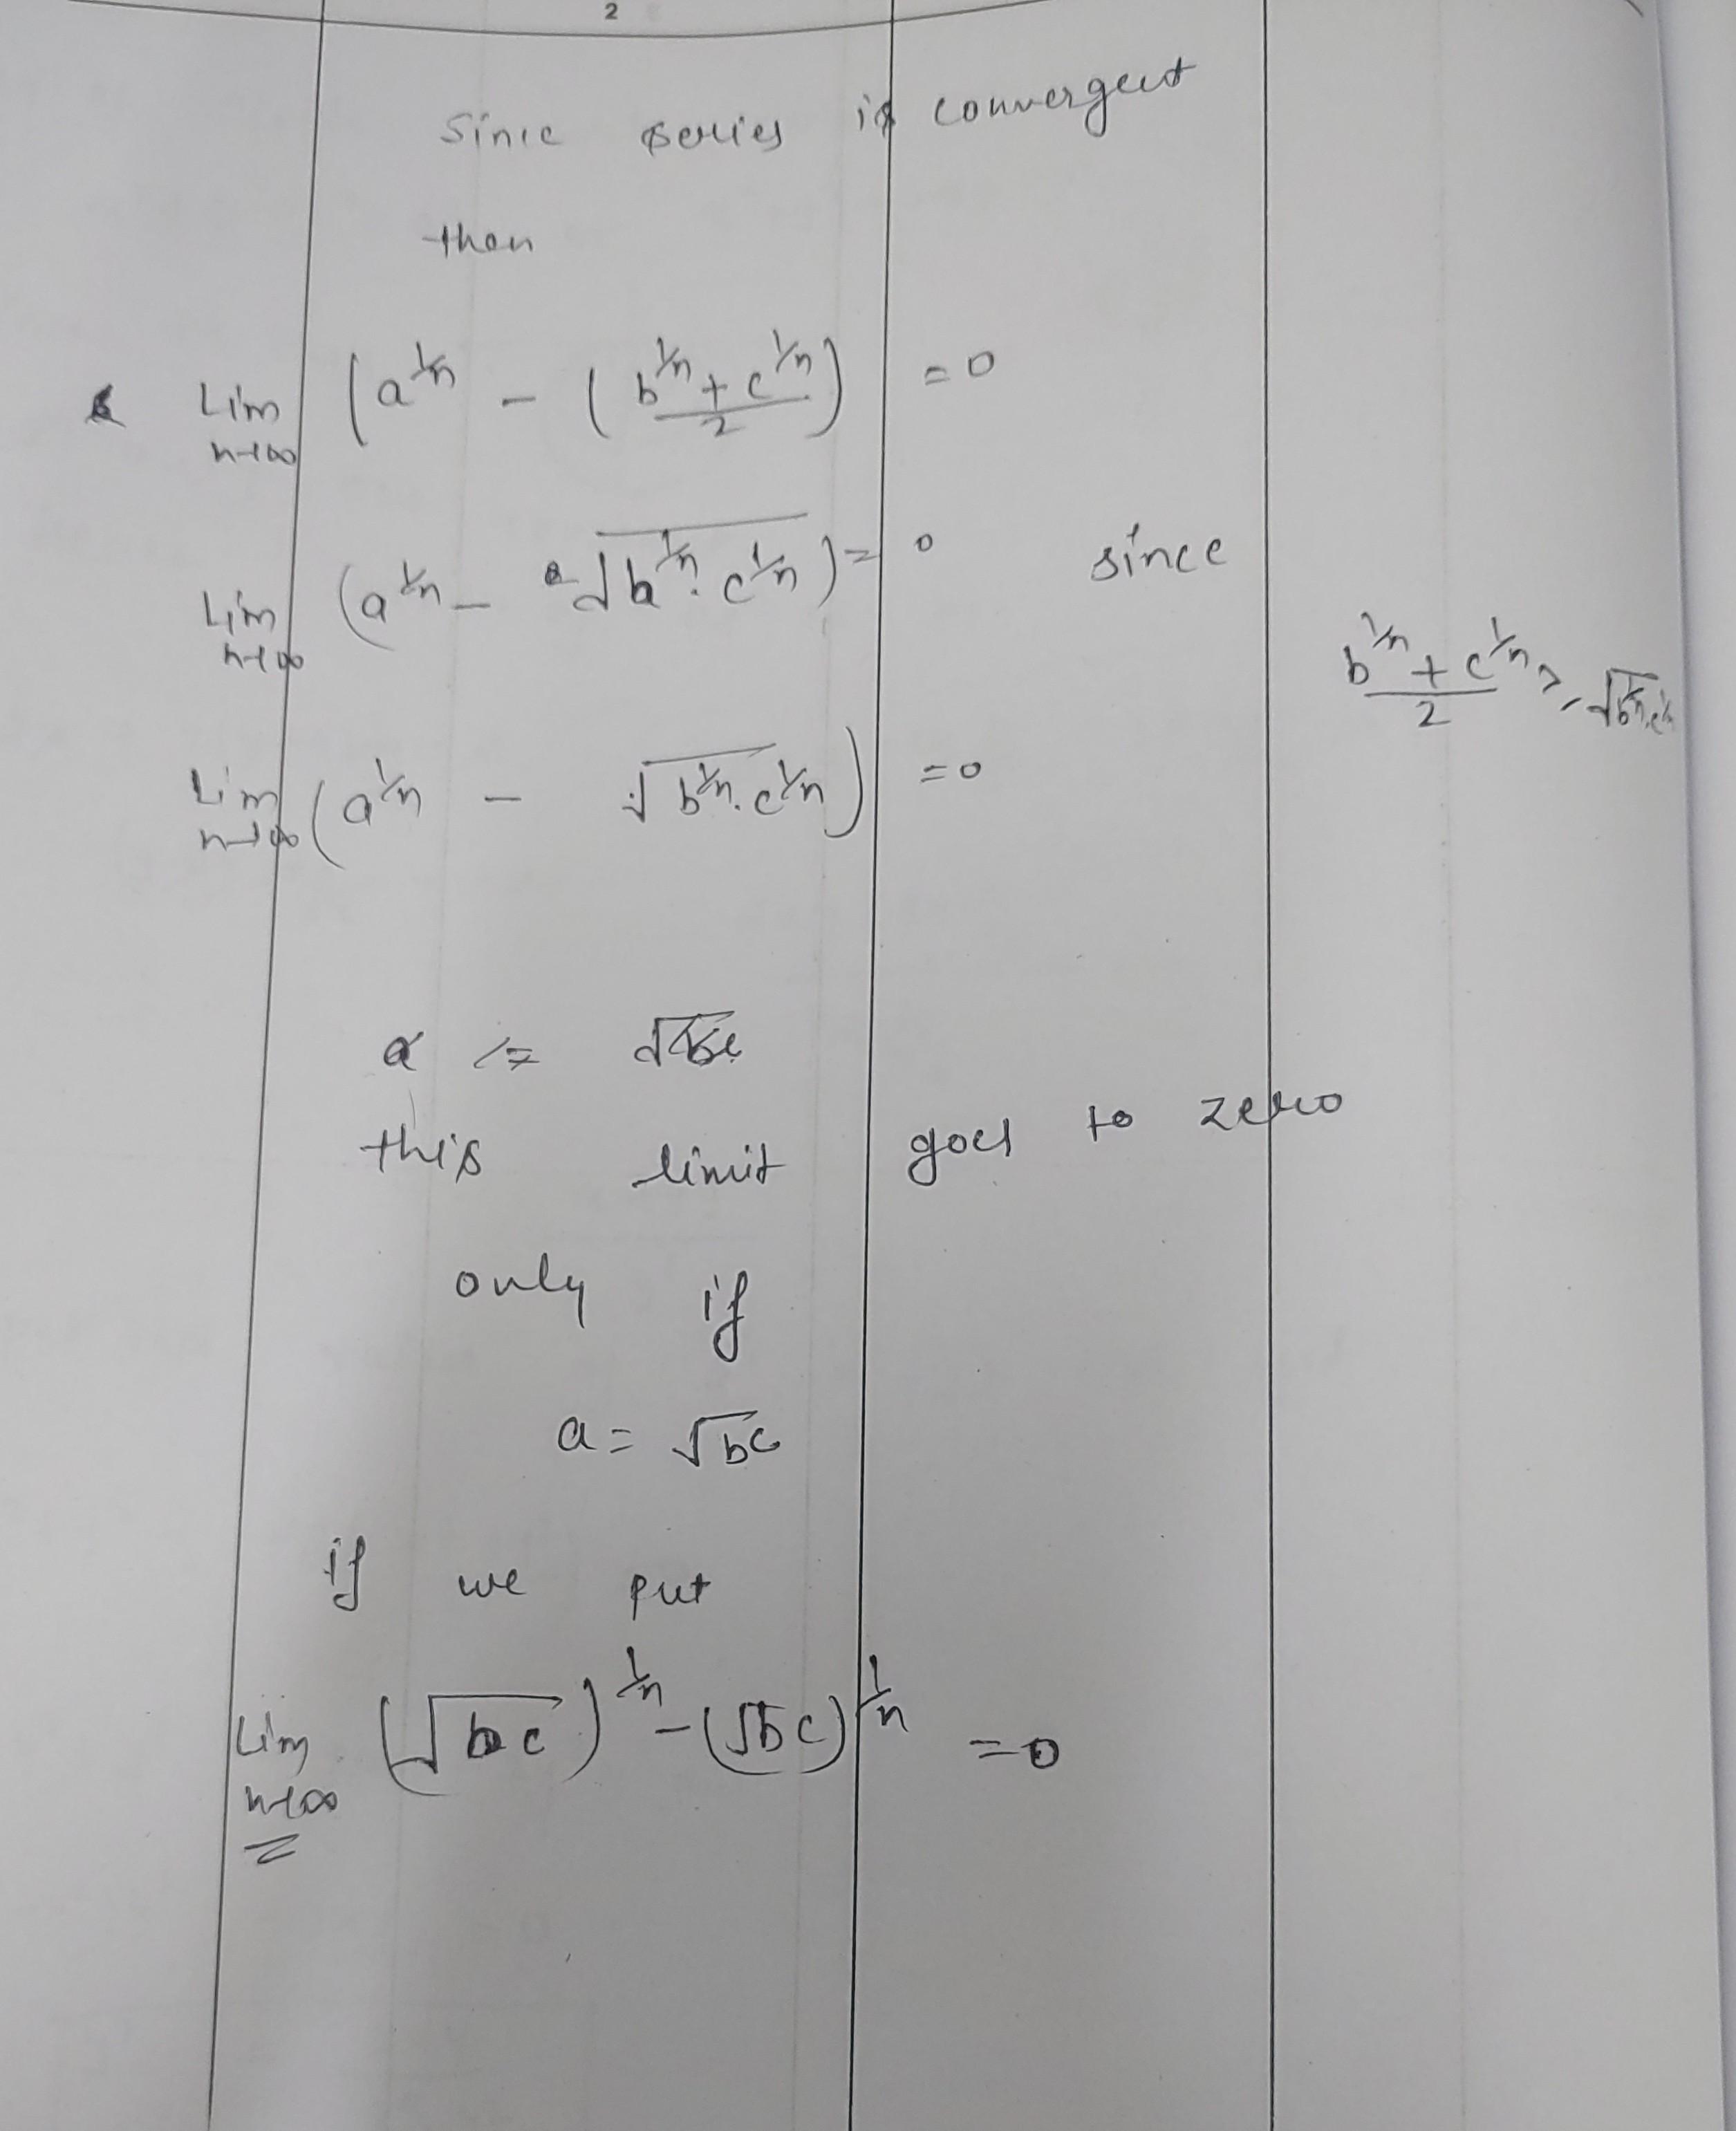 2
Sinie series is convergent
then
Lim n→∞ (a^1/n - (b^1/n + c^1/n)/2) = 0
Lim n→∞ (a^1/n - √(b^1/n . c^1/n)) = 0 since
(b^1/n + c^1/n)/2 ≥ √(b^1/n . c^1/n)
Lim n→∞ (a^1/n - √(b^1/n . c^1/n)) = 0
this limit goes to zero
only if
a = √bc
if we put
Lim n→∞ (√bc)^1/n - (√bc)^1/n = 0